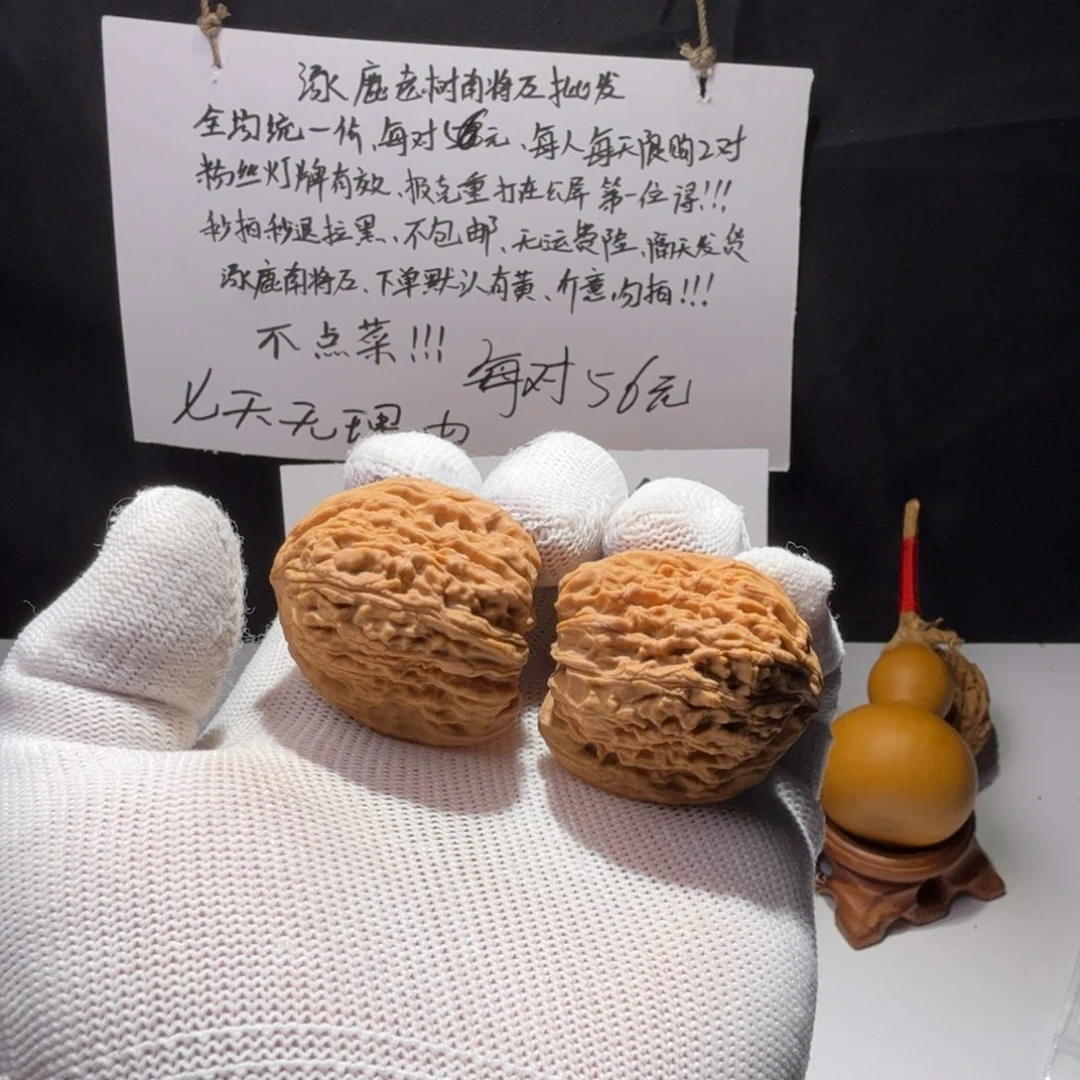 涿鹿老树南将石批发
全均统一价、每对56元、每人每天限购2对
粉丝灯牌有效、报克重打在公屏第一位得!!!
秒拍秒退拉黑、不包邮、无运费险、隔天发货
涿鹿南将石、下单默认有黄、介意勿拍!!!
不点菜!!!
每对56元
七天无理由